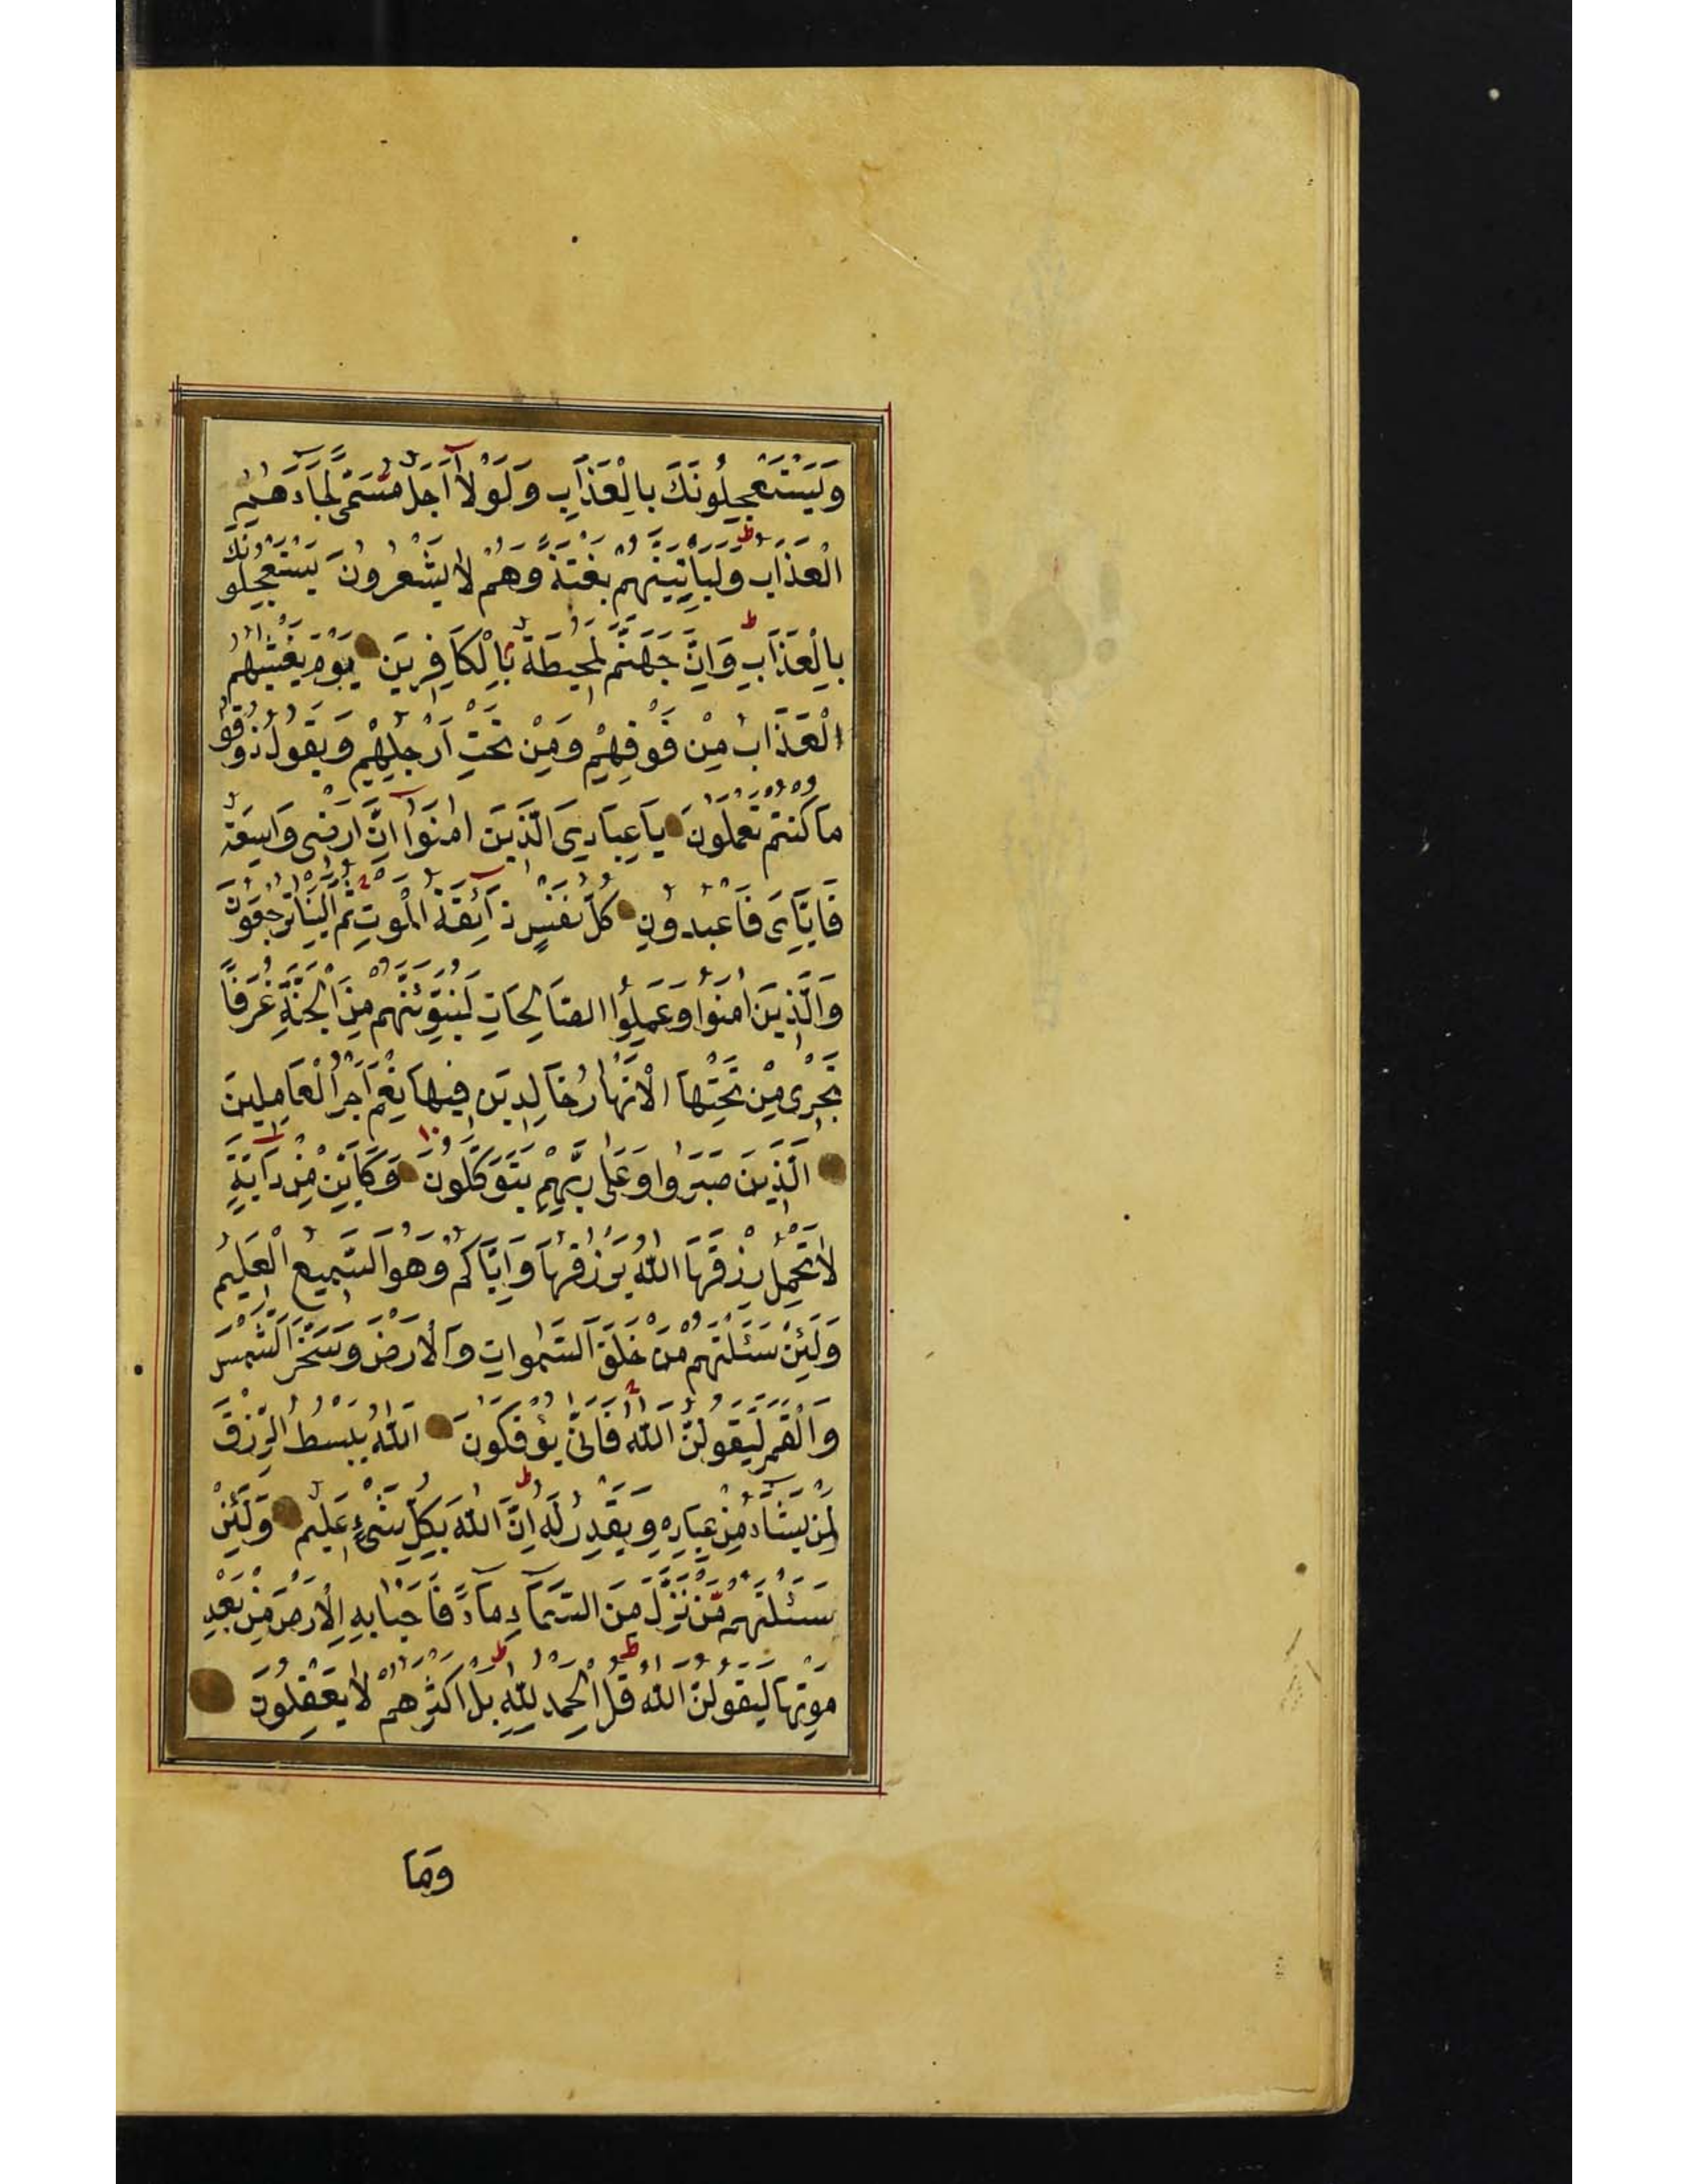 وَيَسْتَعْجِلُونَكَ بِالْعَذَابِ وَلَوْلَآ اَجَلٌ مُسَمًّى لَجَآءَهُمُ
الْعَذَابُ وَلَيَأْتِيَنَّهُمْ بَغْتَةً وَهُمْ لَا يَشْعُرُونَ يَسْتَعْجِلُونَكَ
بِالْعَذَابِ وَاِنَّ جَهَنَّمَ لَمُحِيطَةٌ بِالْكَافِرِينَ يَوْمَ يَغْشٰيهُمُ
الْعَذَابُ مِنْ فَوْقِهِمْ وَمِنْ تَحْتِ اَرْجُلِهِمْ وَيَقُولُ ذُوقُوا
مَا كُنْتُمْ تَعْمَلُونَ يَا عِبَادِيَ الَّذِينَ اٰمَنُوٓا اِنَّ اَرْضِى وَاسِعَةٌ
فَاِيَّاىَ فَاعْبُدُونِ كُلُّ نَفْسٍ ذَآئِقَةُ الْمَوْتِ ثُمَّ اِلَيْنَا تُرْجَعُونَ
وَالَّذِينَ اٰمَنُوا وَعَمِلُوا الصَّالِحَاتِ لَنُبَوِّئَنَّهُمْ مِنَ الْجَنَّةِ غُرَفًا
تَجْرِى مِنْ تَحْتِهَا الْاَنْهَارُ خَالِدِينَ فِيهَا نِعْمَ اَجْرُ الْعَامِلِينَ
الَّذِينَ صَبَرُوا وَعَلٰى رَبِّهِمْ يَتَوَكَّلُونَ وَكَاَيِّنْ مِنْ دَآبَّةٍ
لَا تَحْمِلُ رِزْقَهَا اللّٰهُ يَرْزُقُهَا وَاِيَّاكُمْ وَهُوَ السَّمِيعُ الْعَلِيمُ
وَلَئِنْ سَئَلْتَهُمْ مَنْ خَلَقَ السَّمٰوَاتِ وَالْاَرْضَ وَسَخَّرَ الشَّمْسَ
وَالْقَمَرَ لَيَقُولُنَّ اللّٰهُ فَاَنّٰى يُؤْفَكُونَ اَللّٰهُ يَبْسُطُ الرِّزْقَ
لِمَنْ يَشَآءُ مِنْ عِبَادِهِ وَيَقْدِرُ لَهُ اِنَّ اللّٰهَ بِكُلِّ شَىْءٍ عَلِيمٌ وَلَئِنْ
سَئَلْتَهُمْ مَنْ نَزَّلَ مِنَ السَّمَآءِ مَآءً فَاَحْيَا بِهِ الْاَرْضَ مِنْ بَعْدِ
مَوْتِهَا لَيَقُولُنَّ اللّٰهُ قُلِ الْحَمْدُ لِلّٰهِ بَلْ اَكْثَرُهُمْ لَا يَعْقِلُونَ
وَمَا